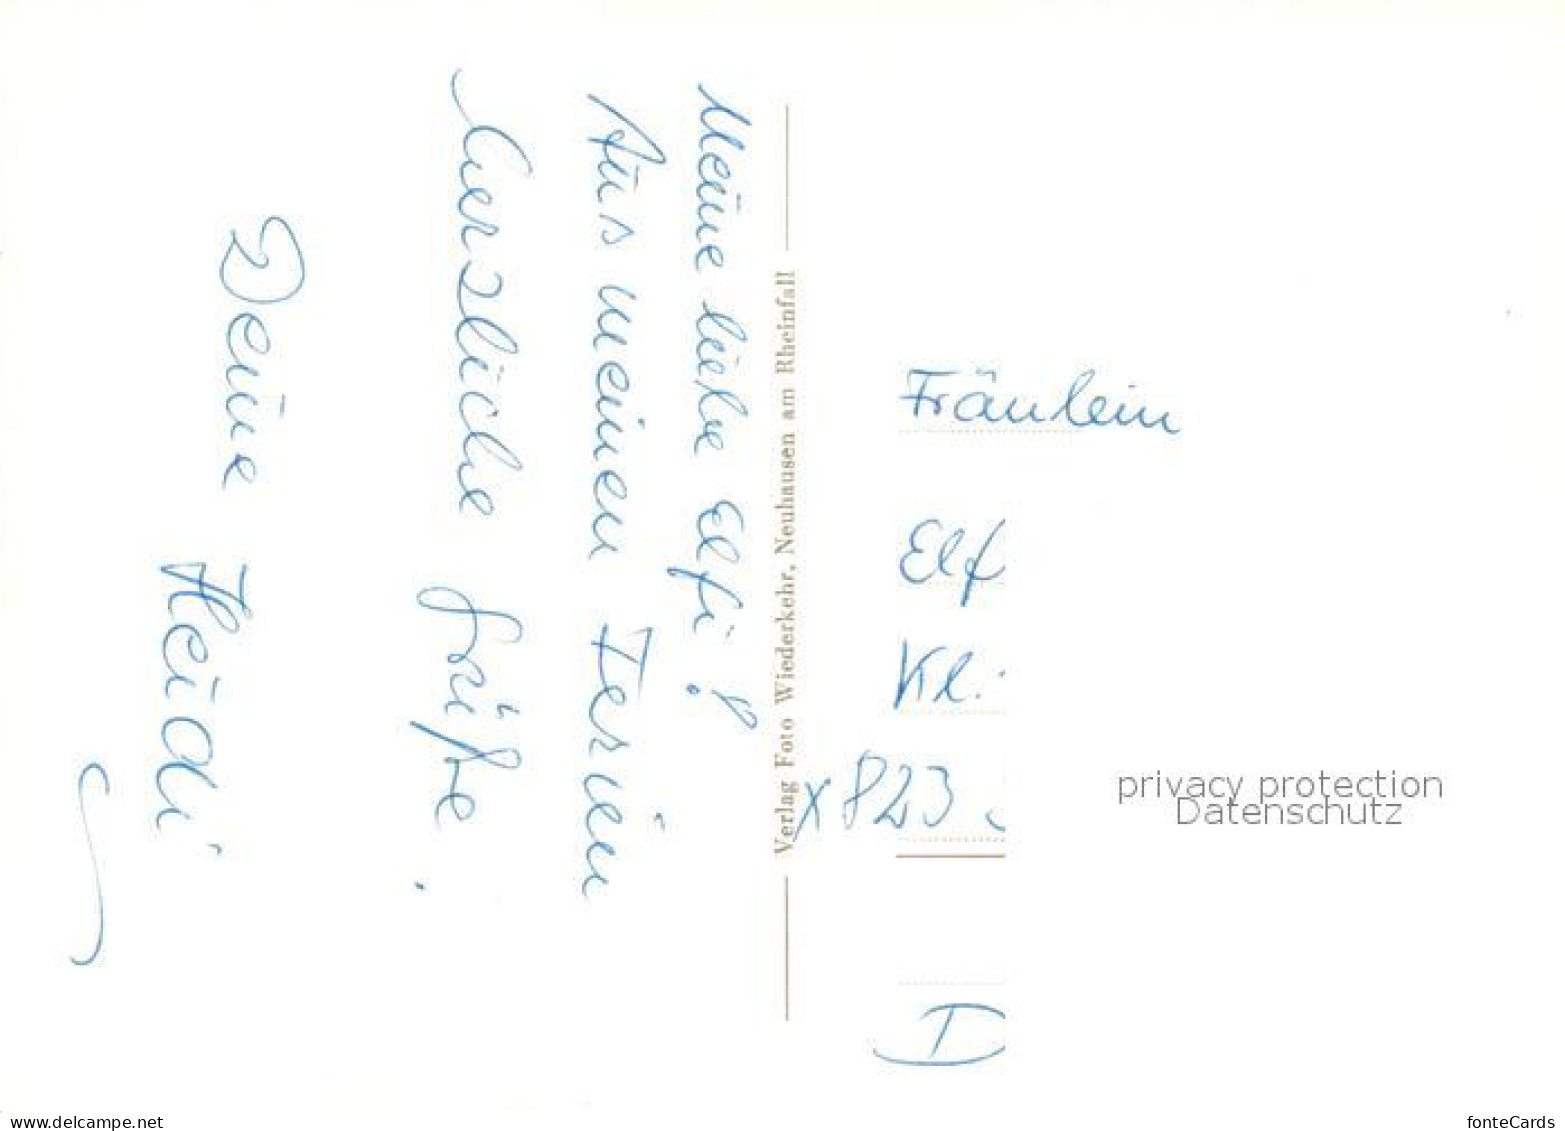 Meine liebe Elfi!
Aus meinen Ferien
herzliche Grüße.
Deine Heidi
Verlag Foto Wiederkehr, Neuhausen am Rheinfall
Fräulein
Elf
Kl.
x 823
D
privacy protection
Datenschutz
www.delcampe.net
fonteCards